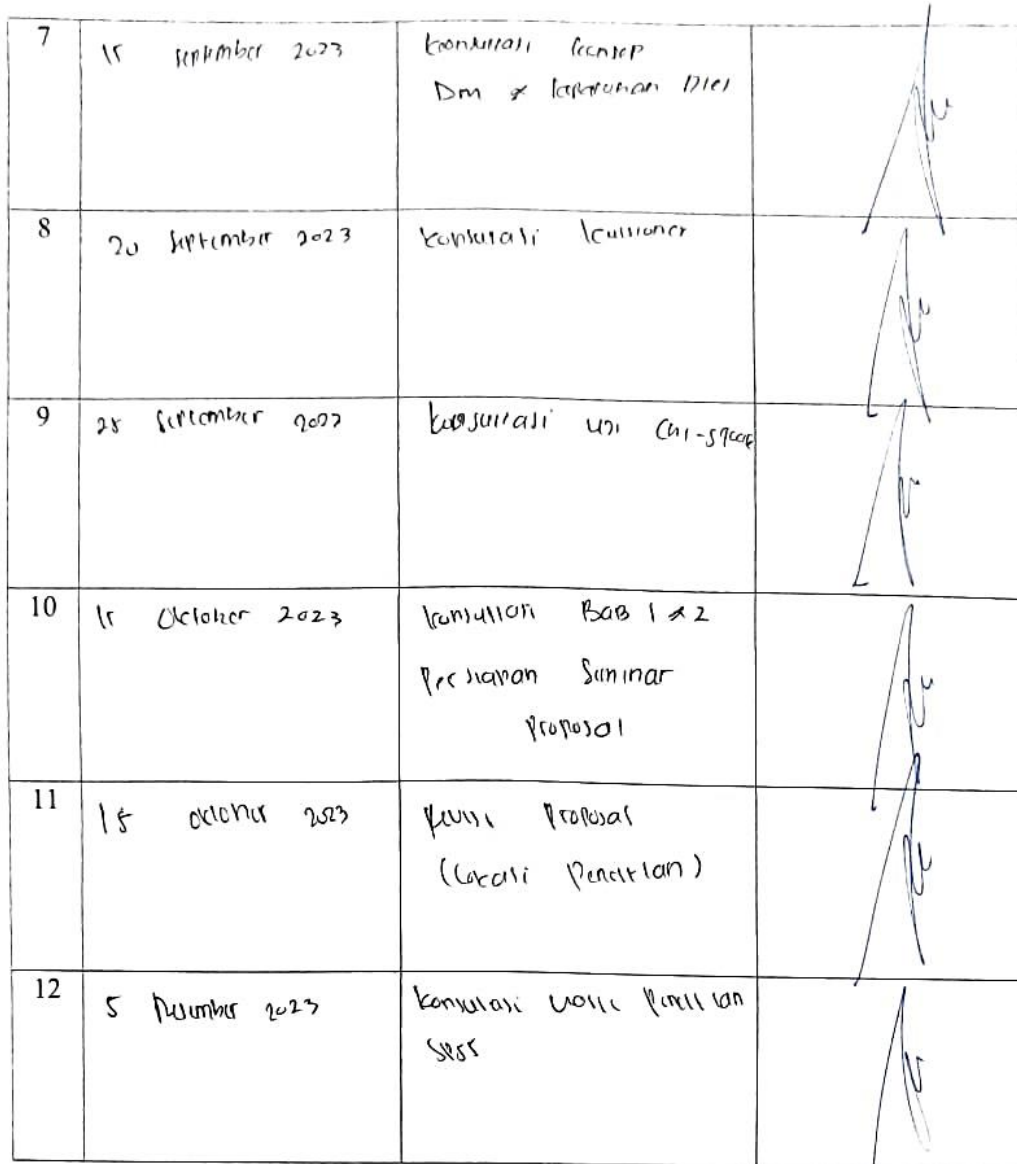 7
15 September 2023
Konsultasi konsep
DM & kepatuhan Diet
8
20 September 2023
Konsultasi kuisioner
9
25 September 2023
Konsultasi uji Chi-square
10
Oktober 2023
Konsultasi BAB 1 & 2
Persiapan Seminar
Proposal
11
15 Oktober 2023
Revisi Proposal
(Lokasi Penelitian)
12
5 Desember 2023
Konsultasi Hasil Penelitian
SPSS